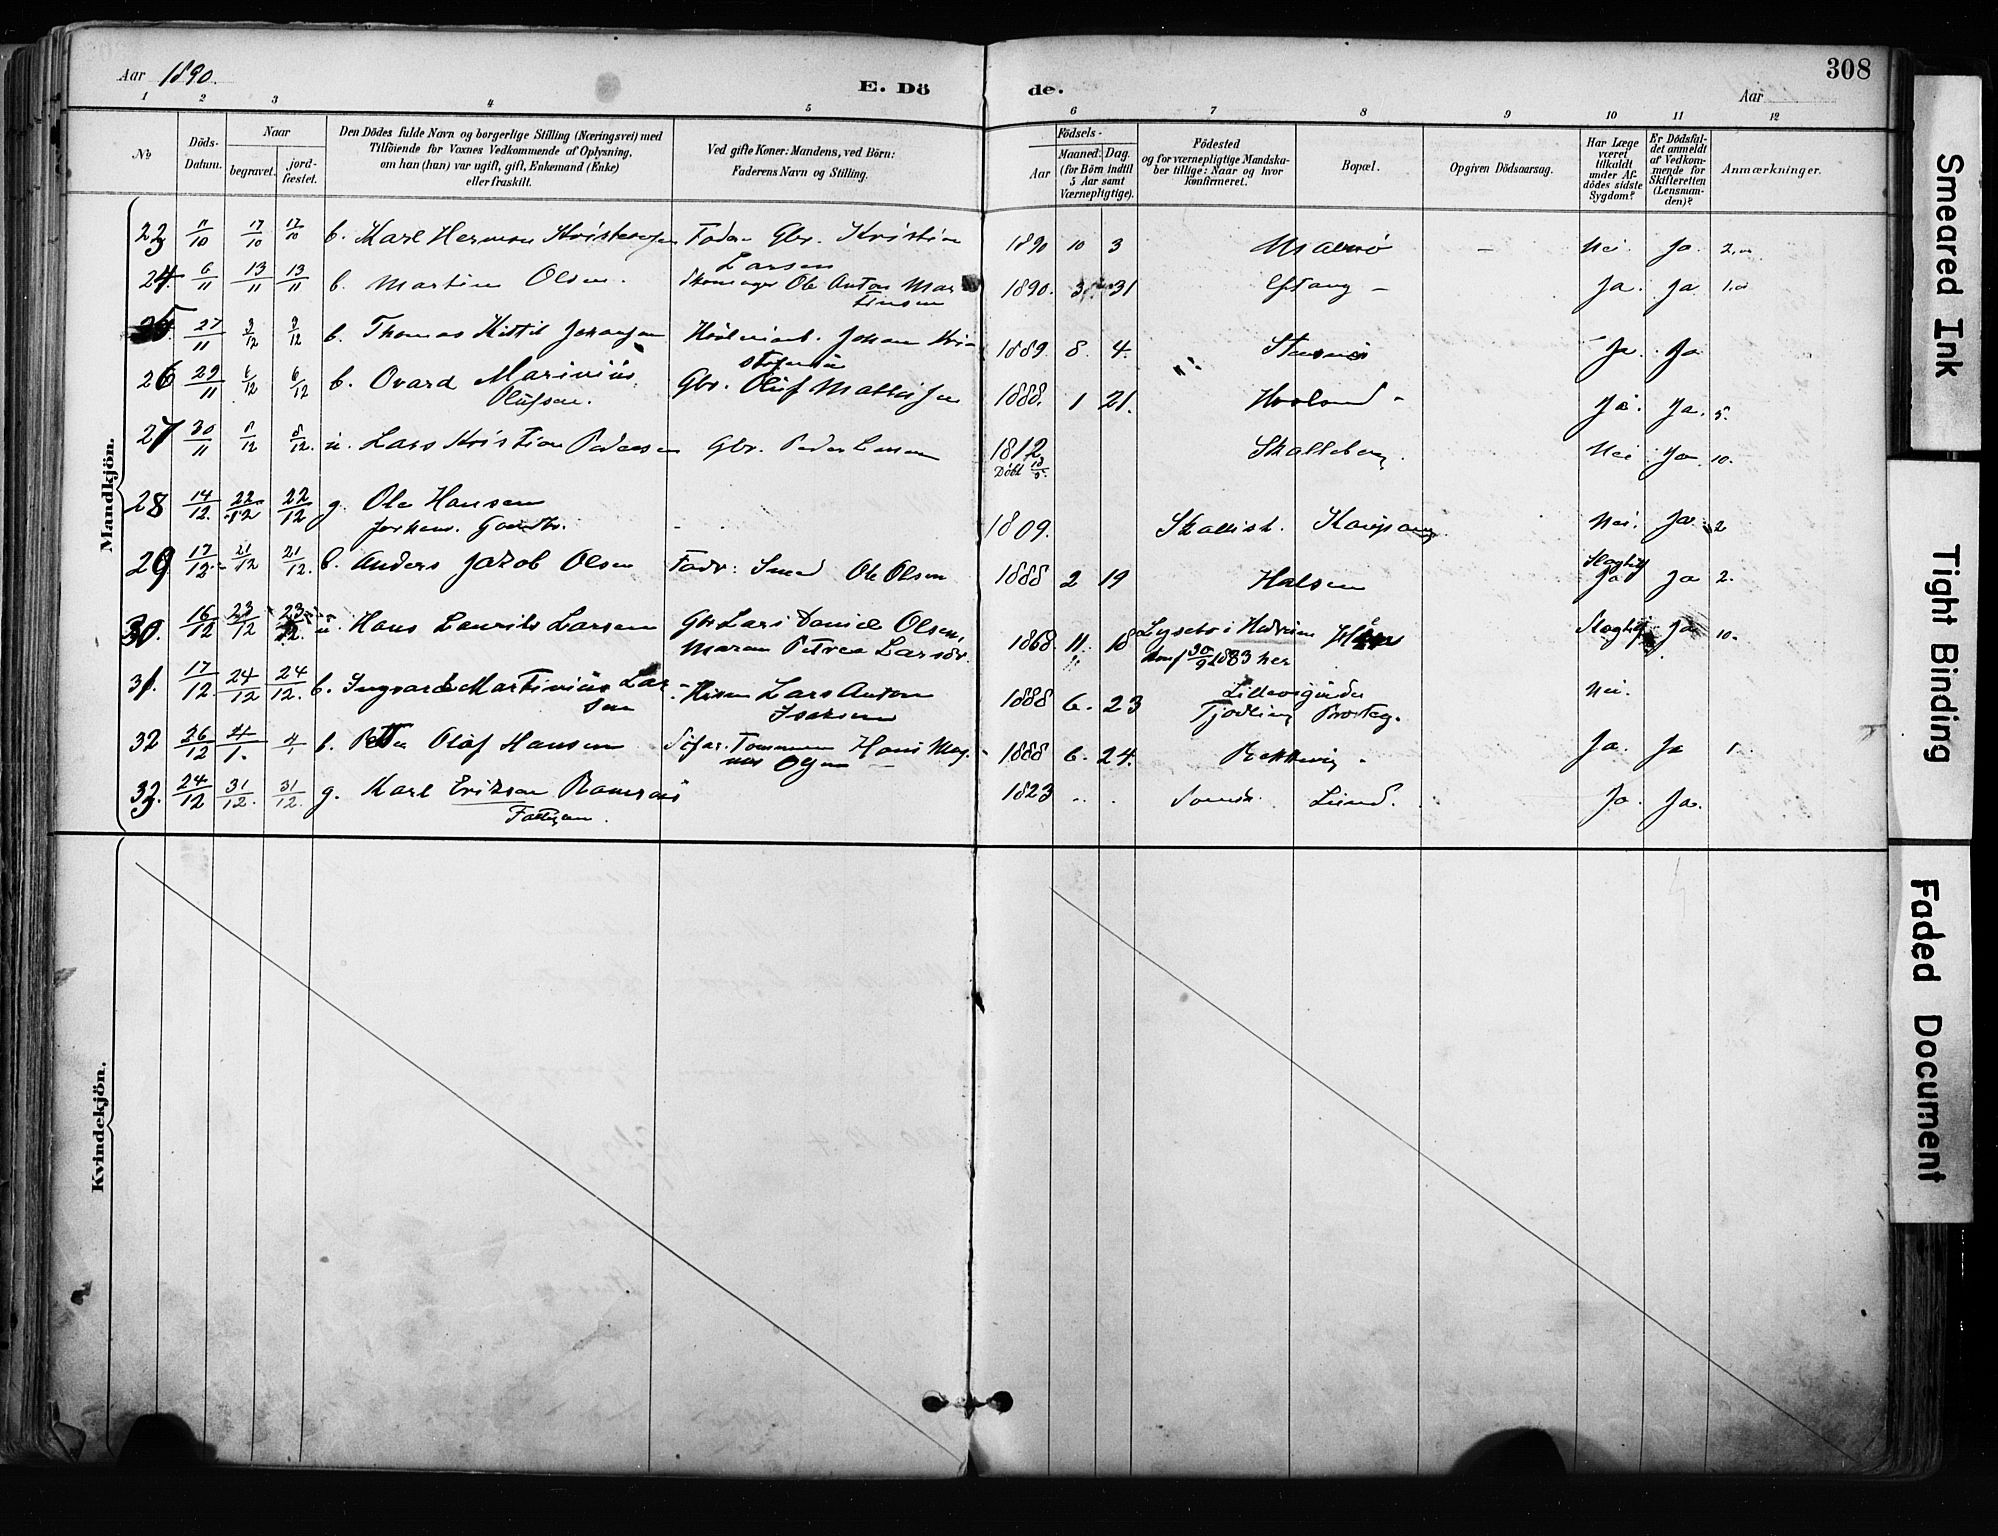 Aar 1890.
E. Döde.
308
Aar
1 2 3 4 5 6 7 8 9 10 11 12
No
Döds-Datum.
Naar
begravet.
jord-fæstet.
Den Dödes fulde Navn og borgerlige Stilling (Næringsvei) med
Tilföiende for Voxnes Vedkommende af Oplysning,
om han (hun) var ugift, gift, Enkemand (Enke)
eller fraskilt.
Ved gifte Koner: Mandens, ved Börn:
Faderens Navn og Stilling.
Födsels-
Aar
Maaned. Dag.
(for Börn indtil
5 Aar samt
Værnepligtige).
Födested
og for værnepligtige Mandska-
ber tillige: Naar og hvor
konfirmeret.
Bopæl.
Opgiven Dödsaarsag.
Har Læge
været
tilkaldt
under Af-
dödes sidste
Sygdom?
Er Dödsfal-
det anmeldt
af Vedkom-
mende for
Skifteretten
(Lensman-
den)?
Anmærkninger.
Mandkjön.
23 11/10 17/10 17/10 b. Karl Herman Kristensen Fader Gbr. Kristian Larsen 1890 10 3 - Nei. Ja. 2.
24. 6/11 13/11 13/11 b. Martin Olsen. Skomager Ole Anton Martinsen 1890. 3 31 Eftang - Ja. Ja 1.
25. 27/11 3/12 3/12 b. Thomas Kittil Johansen Johan Kristofersen 1889. 8. 4. Ja. Ja
26 29/11 6/12 6/12 b. Ovard Marinius Olufsen. Gbr. Oluf Mathisen 1888. 1 21. Ja. Ja. 5.
27 30/11 8/12 8/12. u. Lars Kristian Pedersen Gbr. Peder Larsen 1812 Döbt Skalleberg. Nei Ja. 10.
28 14/12. 22/12 22/12 g. Ole Hansen forhen. Gaardbr. 1809. Kaupang Nei. Ja. 2
29 17/12 21/12 21/12. b. Anders Jakob Olsen Fadr: Smed Ole Olsen 1888 2 19 Halsen Ja Ja 2.
30. 16/12 23/12 23/12. u. Hans Laurits Larsen Gbr Lars Daniel Olsen, Maren Petrea Larsdr. 1868. 11. 18 Lysebo i Hedrum konf 30/9 1883 her Ja 10.
31. 17/12. 24/12 24/12. b. Ingvard Martinius Larsen Lars Anton Isaksen 1888 6. 23 Tjodling Presteg. Nei.
32 26/12 4/1. 4/1 b. Petter Olaf Hansen Söfar. Tommerm Hans Magnus Olsen 1888 6. 24. Rekkevig. Ja. Ja 1.
33. 24/12 31/12. 31/12. g. Karl Erikson Ramsås Fattigm. 1823 Lund. Ja. Ja.
Kvindekjön.
Smeared Ink
Tight Binding
Faded Document